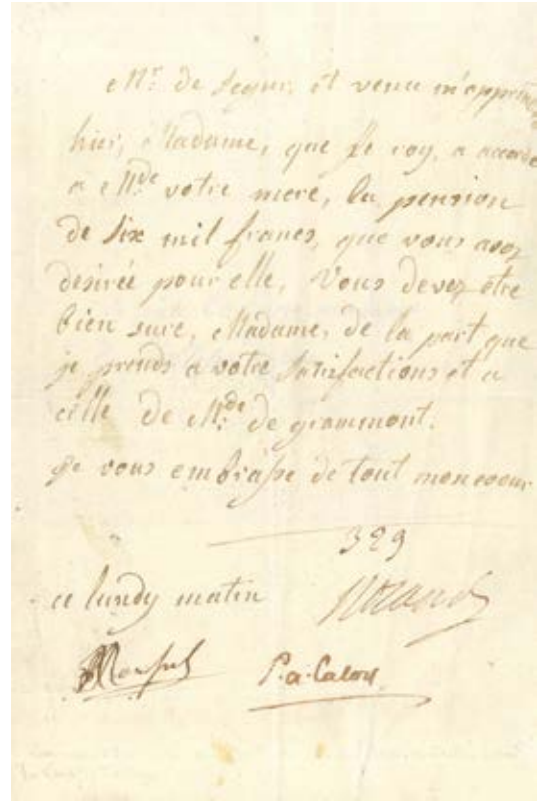 Mr. de Segur, et venu m'apprendre
hier, Madame, que le roy, a accordé
a Mde votre mere, la pension
de six mil francs, que vous avez
desirée pour elle, Vous devez etre
bien sure, Madame, de la part que
je prends a votre satisfactions et a
celle de Mde de grammont.
je vous embrasse de tout mon coeur
329
ce lundy matin
P. a. Calon